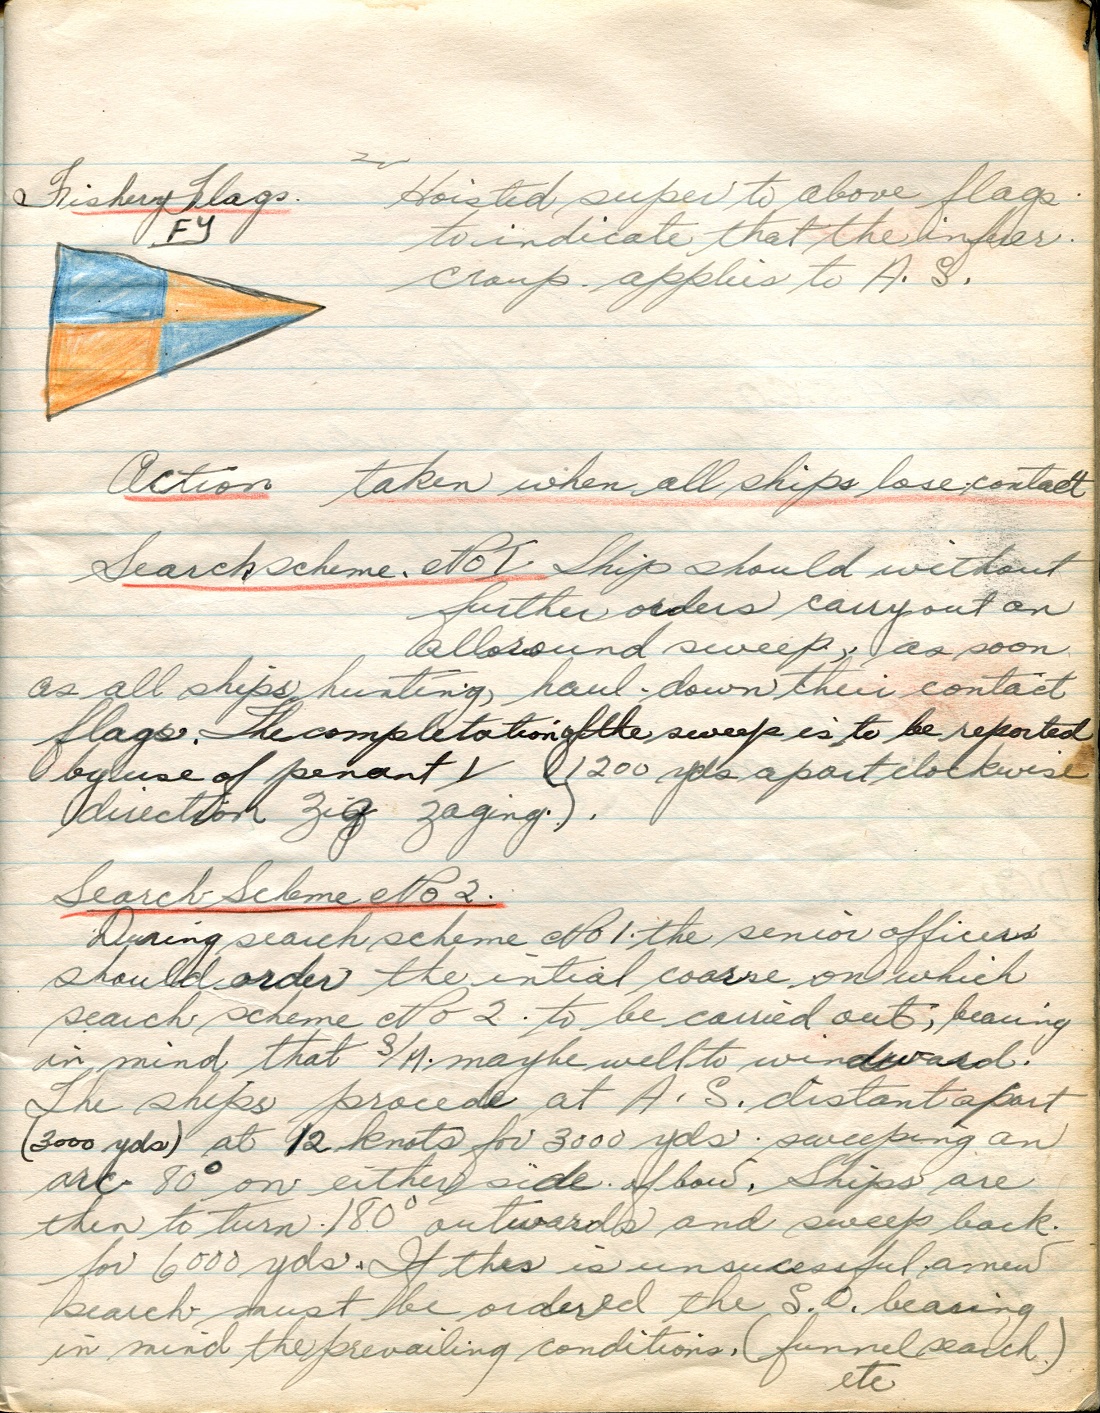 Fishery Flags.
FY
Hoisted super to above flags
to indicate that the infuer.
croup. applies to A. S.
Action taken when all ships lose contact
Search scheme. No 1 Ship should without
further orders carry out an
allround sweep, as soon
as all ships hunting, haul-down their contact
flags. The completation of the sweep is to be reported
by use of penant V (1200 yds apart clockwise
direction Zig zaging.).
Search Scheme No 2.
During search scheme No 1. the senior officers
should order the intial coarse on which
search scheme No 2. to be carried out, bearing
in mind that S/M. maybe well to windward.
The ships procede at A. S. distant apart
(3000 yds) at 12 knots for 3000 yds. sweeping an
arc 80° on either side of bow. Ships are
then to turn 180° outwards and sweep back.
for 6000 yds. If thes is unsucessful a new
search must be ordered the S.O. bearing
in mind the prevailing conditions. (funnel search.)
etc